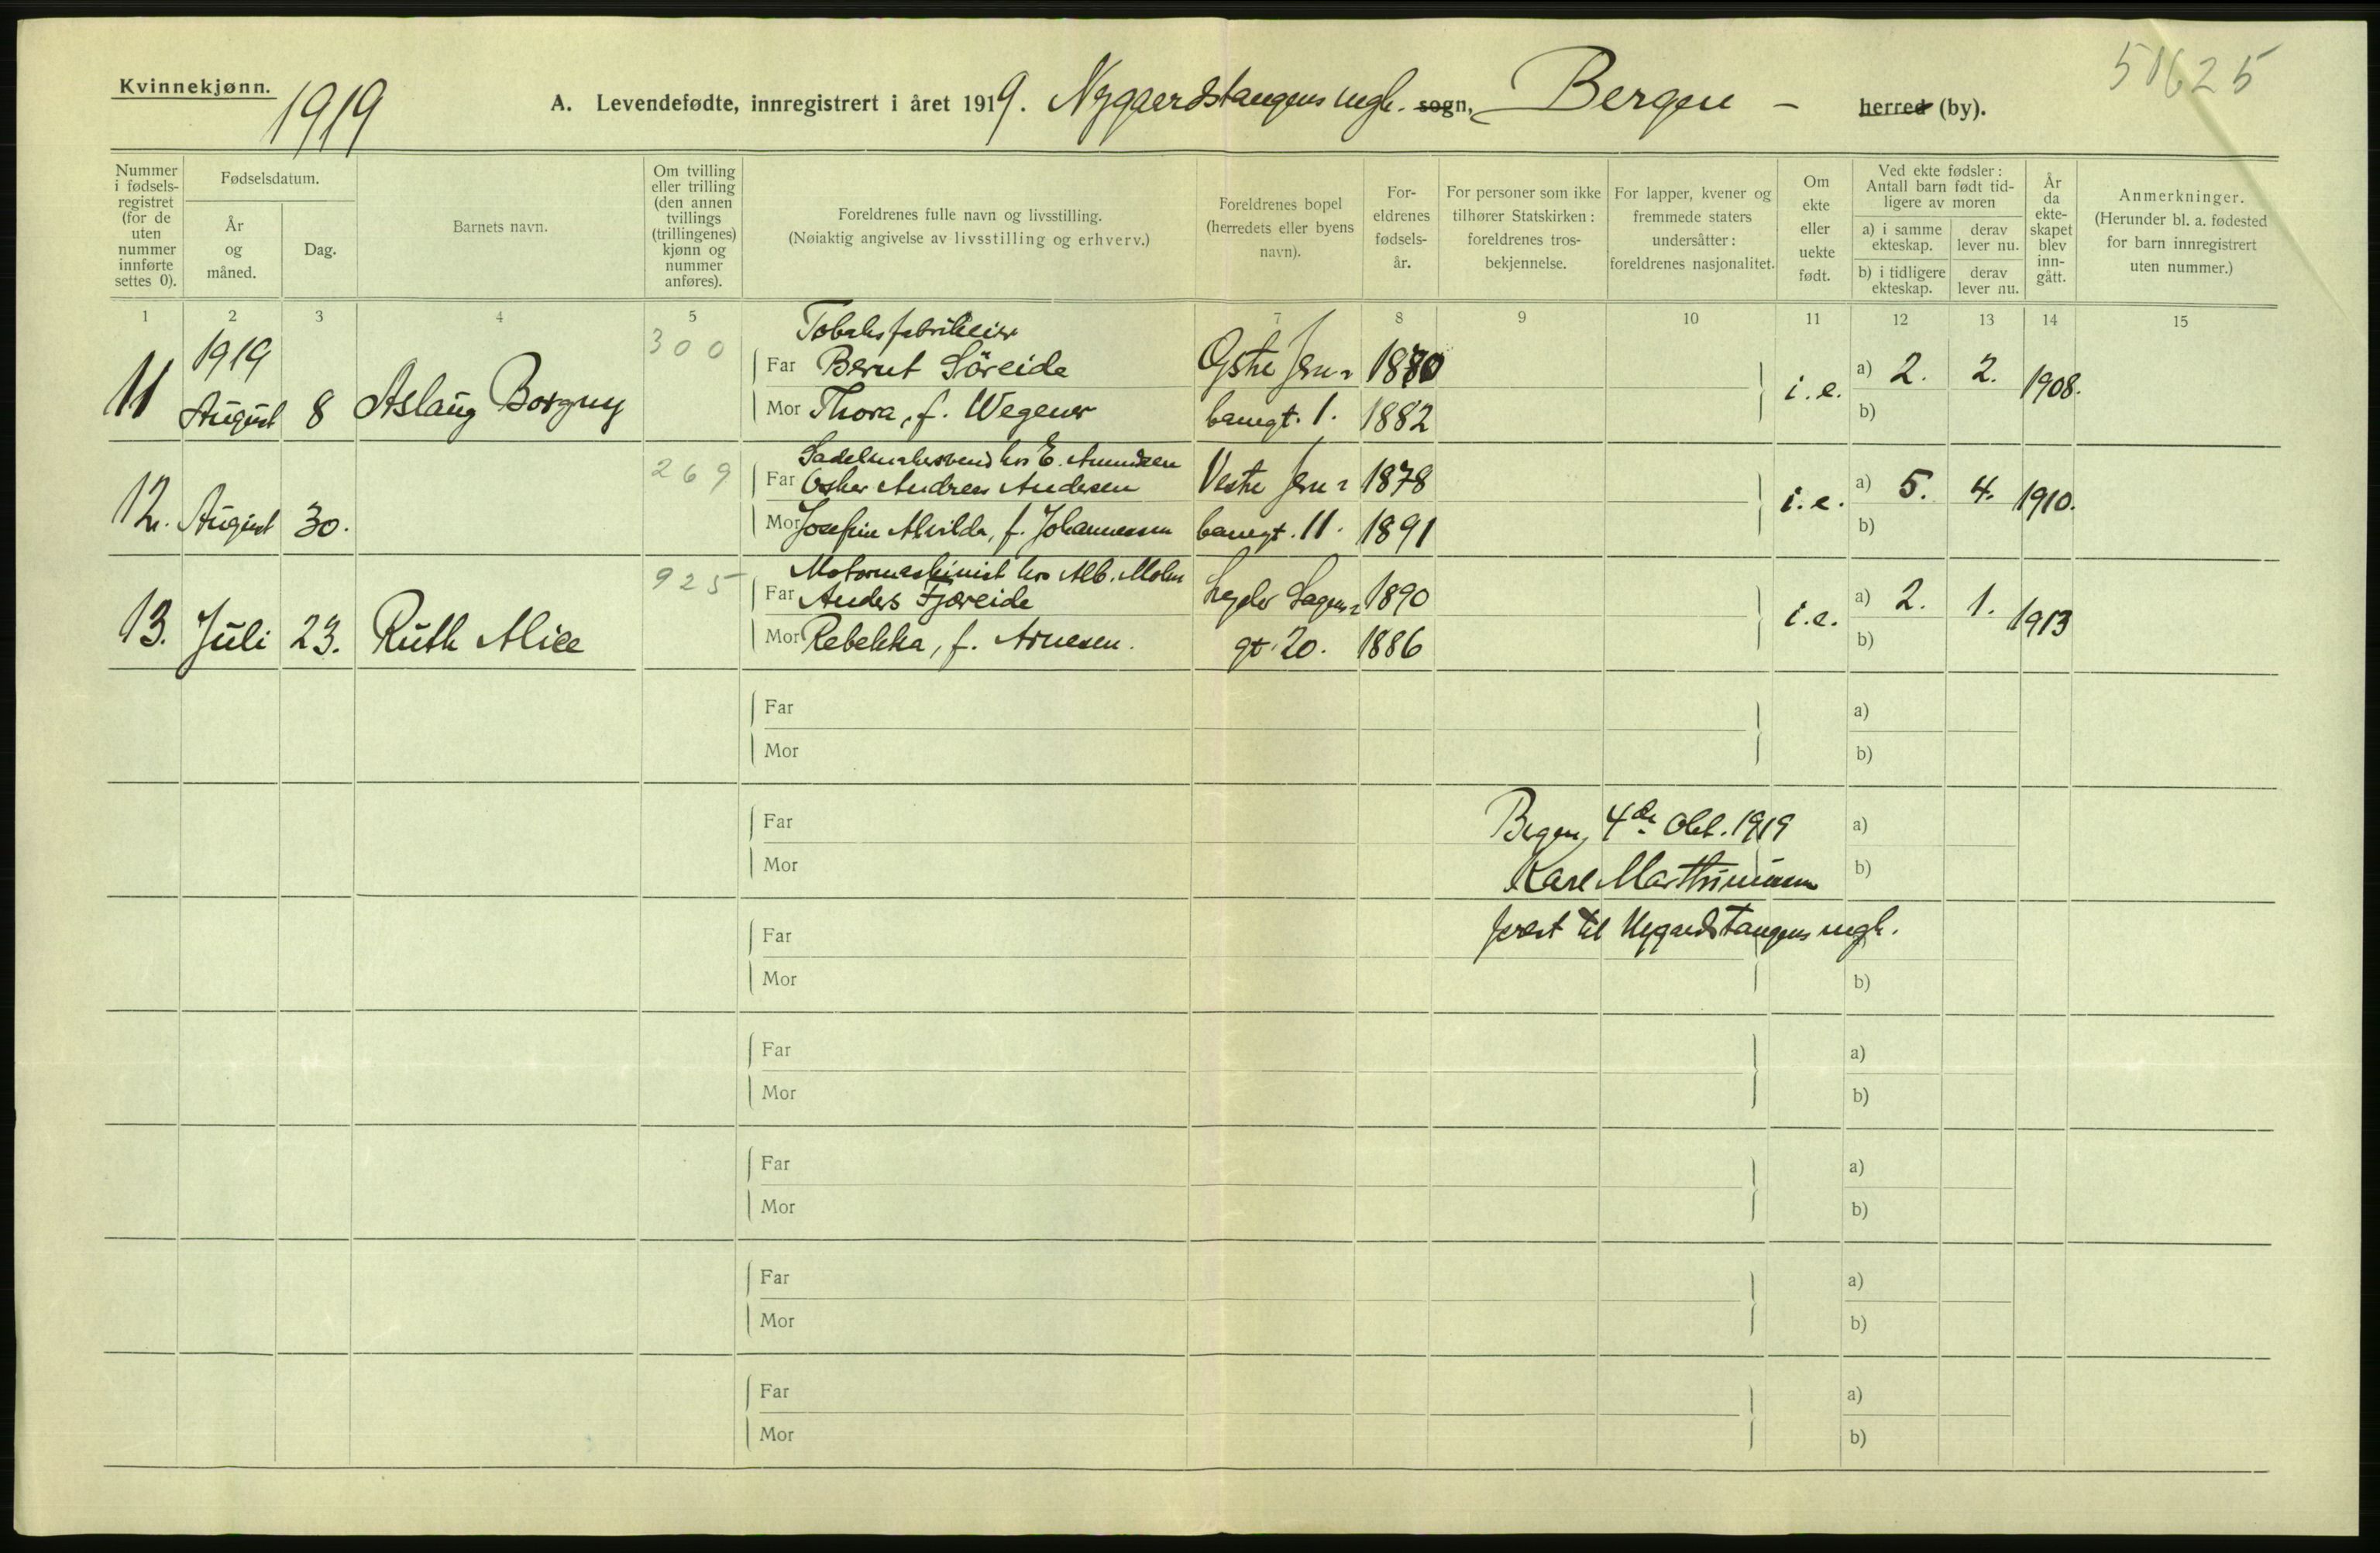 Kvinnekjønn.
1919
A. Levendefødte, innregistrert i året 1919. Nygaardstangens mgh. sogn, Bergen - herred (by).
50625
Nummer i fødsels- registret (for de uten nummer innførte settes 0).
Fødselsdatum.
År og måned.
Dag.
Barnets navn.
Om tvilling eller trilling (den annen tvillings (trillingenes) kjønn og nummer anføres).
Foreldrenes fulle navn og livsstilling.
(Nøiaktig angivelse av livsstilling og erhverv.)
Foreldrenes bopel (herredets eller byens navn).
For- eldrenes fødsels- år.
For personer som ikke tilhører Statskirken: foreldrenes tros- bekjennelse.
For lapper, kvener og fremmede staters undersåtter: foreldrenes nasjonalitet.
Om ekte eller uekte født.
Ved ekte fødsler: Antall barn født tid- ligere av moren
a) i samme ekteskap.
derav lever nu.
b) i tidligere ekteskap.
derav lever nu.
År da ekte- skapet blev inn- gått.
Anmerkninger.
(Herunder bl. a. fødested for barn innregistrert uten nummer.)
1 2 3 4 5 7 8 9 10 11 12 13 14 15
300 Tobaksfabrikeier
1919
11 August 8 Aslaug Borgny
Far Bernt Söreide Østre Jern= 1880
Mor Thora, f. Wegener banegt. 1. 1882
i. e. a) 2. 2. 1908.
b)
269 Sadelmakersvend hos E. Amundsen
12. August 30.
Far Oskar Andreas Andersen Vestre Jern= 1878
Mor Josefine Alvilda, f. Johannessen banegt. 11. 1891
i. e. a) 5. 4. 1910.
b)
925 Motormaskinist hos Alb. Mohn
13. Juli 23. Ruth Alice
Far Anders Fjæreide Lyder Sagens= 1890
Mor Rebekka, f. Arnesen. gt. 20. 1886
i. e. a) 2. 1. 1913
b)
Far a)
Mor b)
Far Bergen, 4de Okt. 1919 a)
Mor Karl Marthinussen b)
Far prest til Nygaardstangens mgh.
Mor b)
Far a)
Mor b)
Far a)
Mor b)
Far a)
Mor b)
Far a)
Mor b)